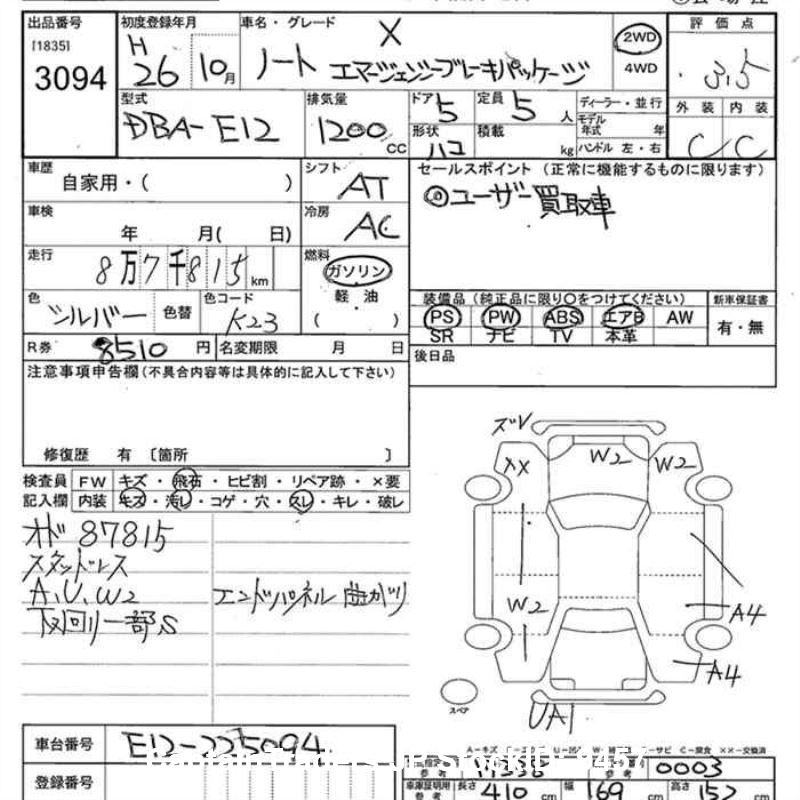 出品番号 初度登録年月 車名・グレード 評価点
[1835] 3094 H 26 10月 ノート X エマージェンシーブレーキパッケージ 2WD 4WD 3.5
型式 排気量 ドア 5 定員 5人 ディーラー・並行 外装 内装
DBA-E12 1200cc 形状 ハコ 積載 kg モデル年式 年 ハンドル 左・右 C C
車歴 自家用・( ) シフト AT セールスポイント (正常に機能するものに限ります)
車検 年 月( 日) 冷房 AC ◎ユーザー買取車
走行 8万7千815km 燃料 ガソリン
軽油
( )
色 シルバー 色替 色コード K23 装備品(純正品に限り○をつけてください) 新車保証書
PS PW ABS エアB AW 有・無
SR ナビ TV 本革
R券 8510円 名変期限 月 日 後日品
注意事項申告欄(不具合内容等は具体的に記入して下さい)
修復歴 有 〔箇所 〕
検査員 FW キズ・飛石・ヒビ割・リペア跡・×要
記入欄 内装 キズ・汚し・コゲ・穴・スレ・キレ・破レ
オド 87815
スタッドレス
A、U、W2 エンドパネル 曲がり
下回り一部S
ズレ
XX W2 W2
W2 A4
A4
スペア UA1
車台番号 E12-225094
登録番号
0003
長さ 410 cm 幅 169 cm 高さ 152 cm